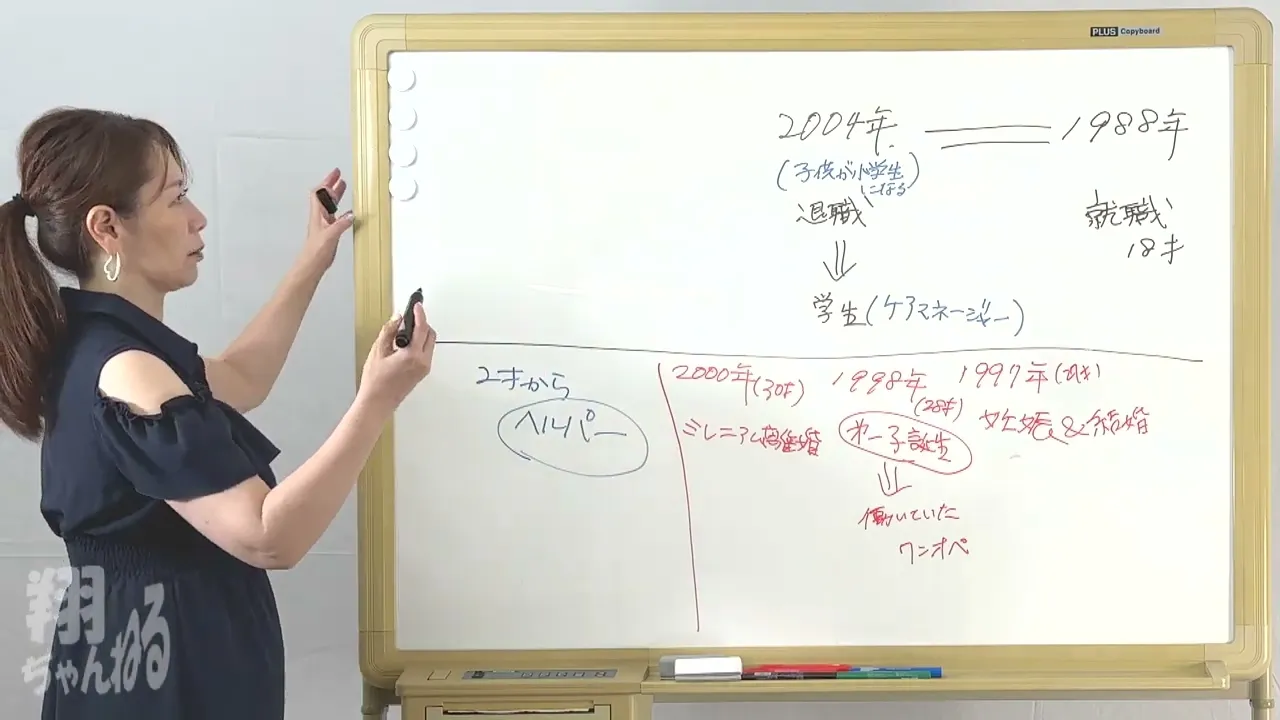 PLUS Copyboard
2004年 ＝ 1988年
(子供が小学生
になる)
退職
就職
18才
⇓
学生(ケアマネージャー)
2才から
ヘルパー
2000年(30才)
1998年
(28才)
1997年
ミレニアム離婚
第一子誕生
妊娠&結婚
⇓
働いていた
ワンオペ
翔
ちゃんねる